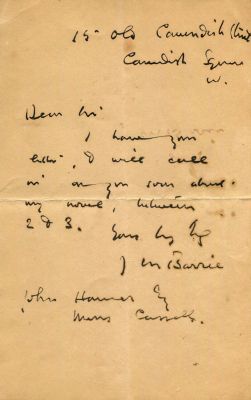 15 Old Cavendish Street
Cavendish Square
W.
Dear Sir
I have your
letter, I will call
in on you soon about
my novel, between
2 & 3.
Yours
J M Barrie
John Hamer Esq
Messrs Cassells.